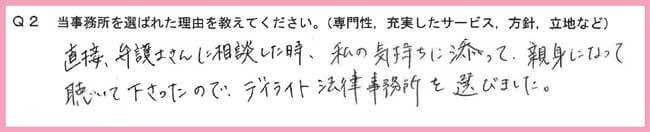 Q2 当事務所を選ばれた理由を教えてください。(専門性，充実したサービス，方針，立地など)
直接、弁護士さんに相談した時、私の気持ちに添って、親身になって
聴いて下さったので、デイライト法律事務所を選びました。